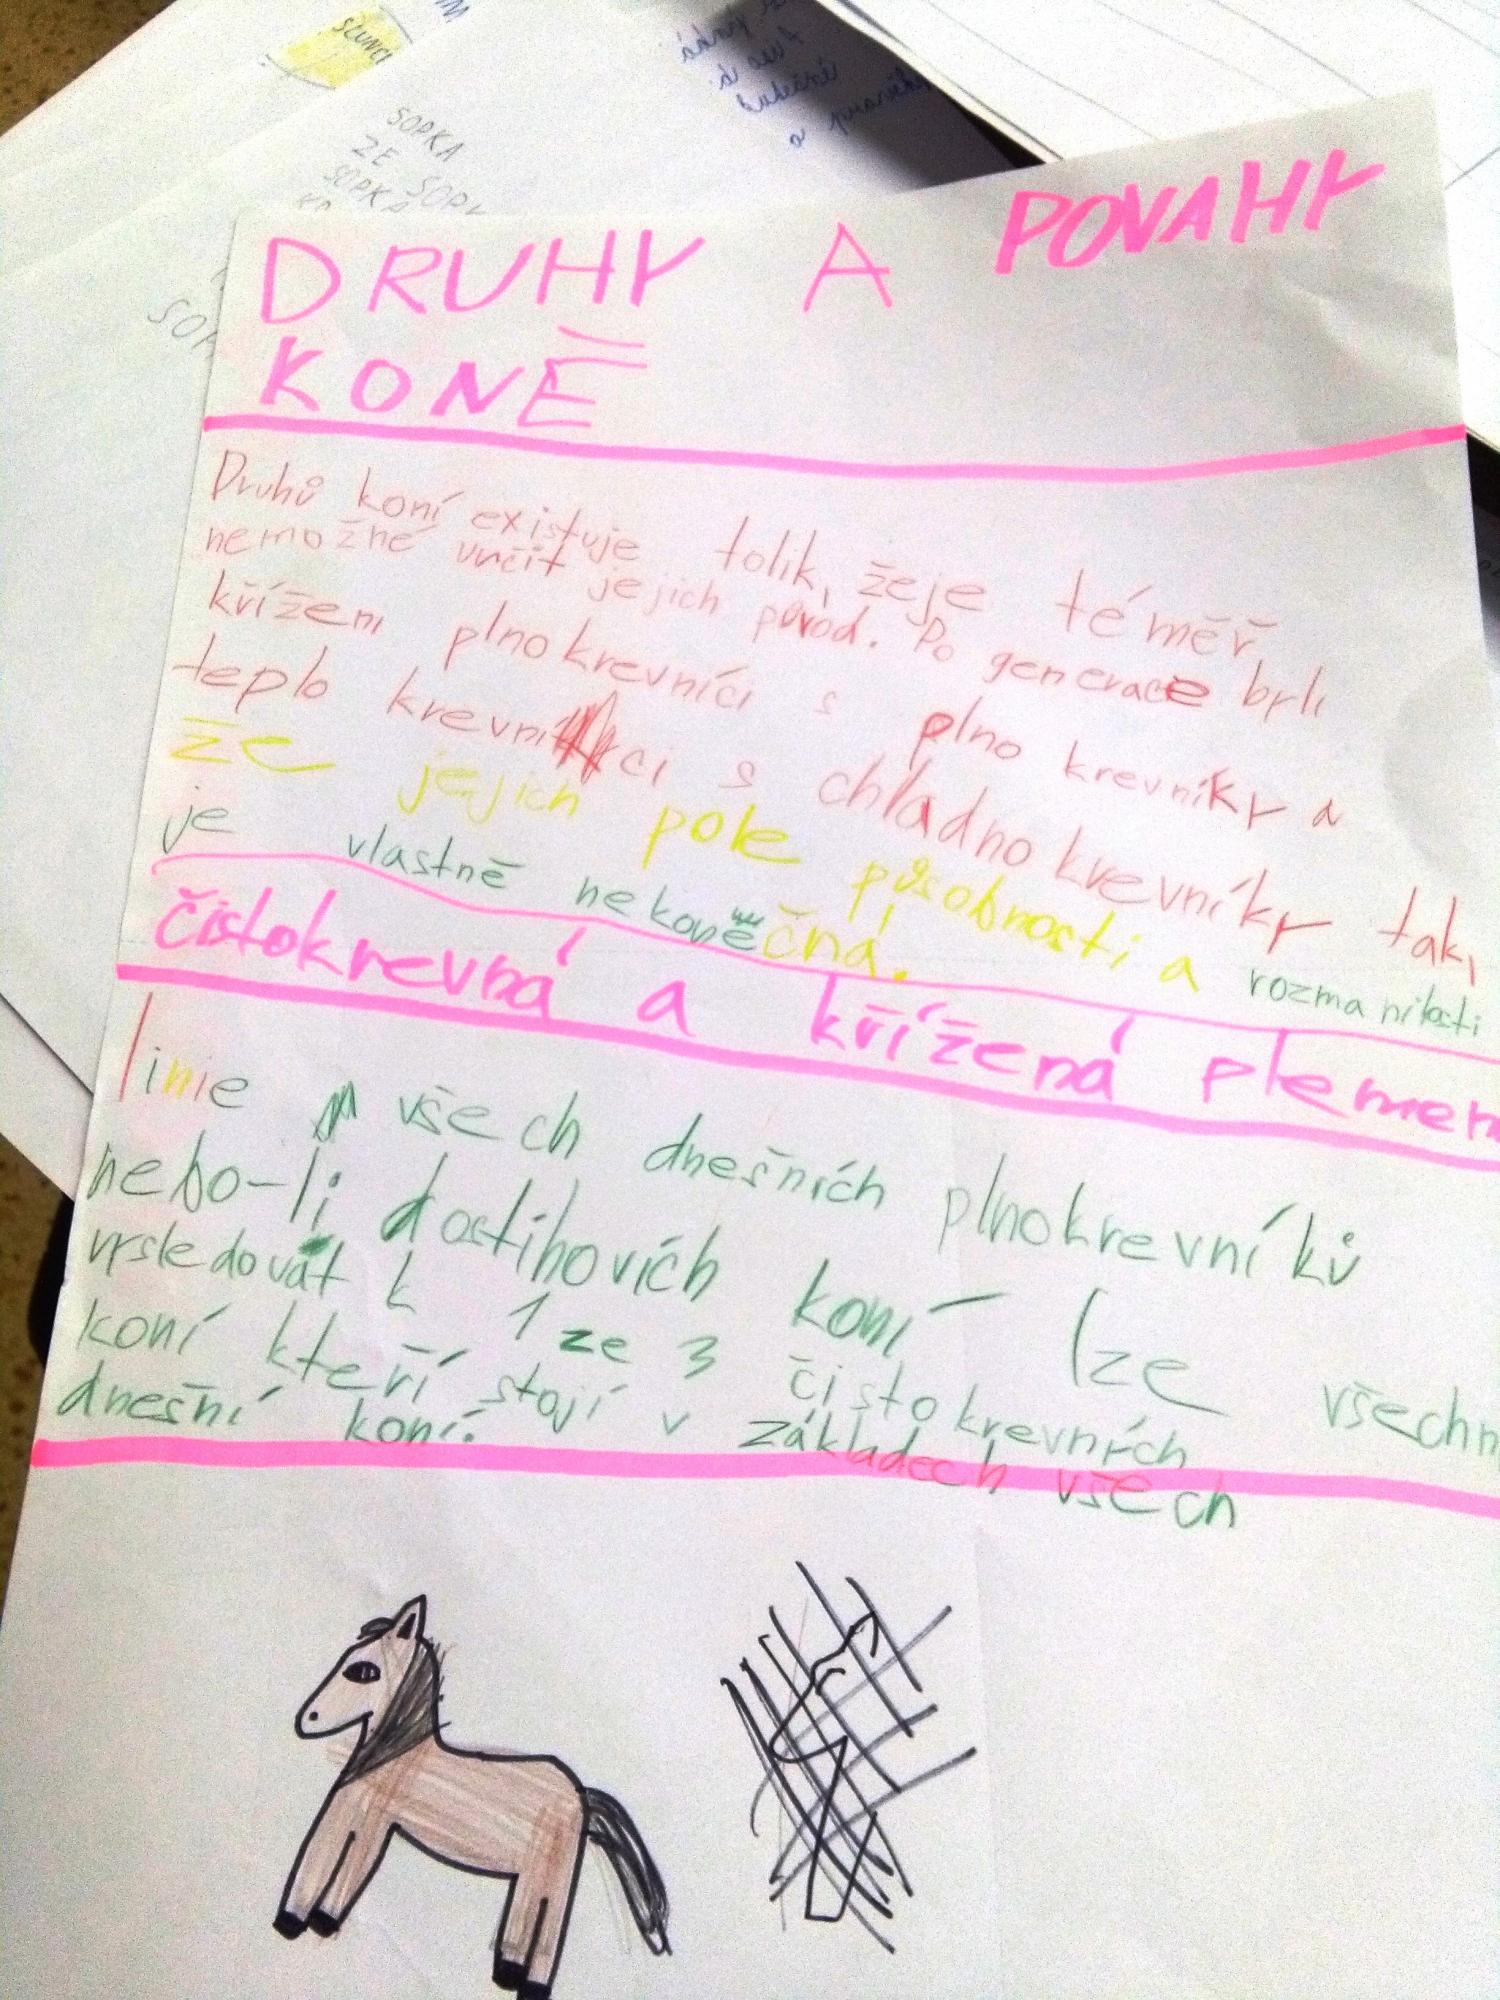 SLUNCE
SOPKA
ZE SOPK
SOPKA
DRUHY A POVAHY
KONĚ
Druhů koní existuje tolik, žeje téměř
nemožné určit jejich původ. Po generace byli
kříženi plnokrevníci s plno krevníky a
teplo krevníci s chladno krevníky tak,
že jejich pole působnosti a rozmanitosti
je vlastně nekonečná.
čistokrevná a křížená plemen
linie všech dnešních plnokrevníků
nebo-li dostihovích koní lze všechn
vysledovat k 1 ze 3 čistokrevních
koní kteří stojí v základech všech
dnešní koní.